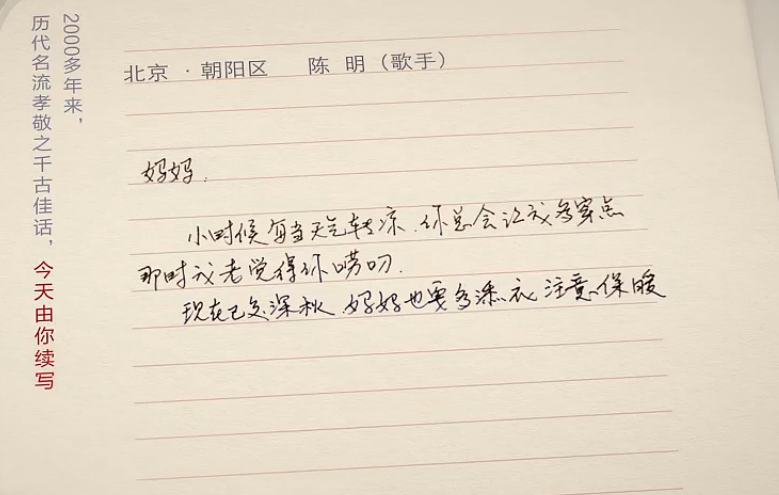 2000多年来，
历代名流孝敬之千古佳话，今天由你续写
北京·朝阳区 陈 明（歌手）
妈妈，
小时候每当天气转凉，你总会让我多穿点
那时我老觉得你唠叨．
现在已交深秋，妈妈也要多添衣，注意保暖